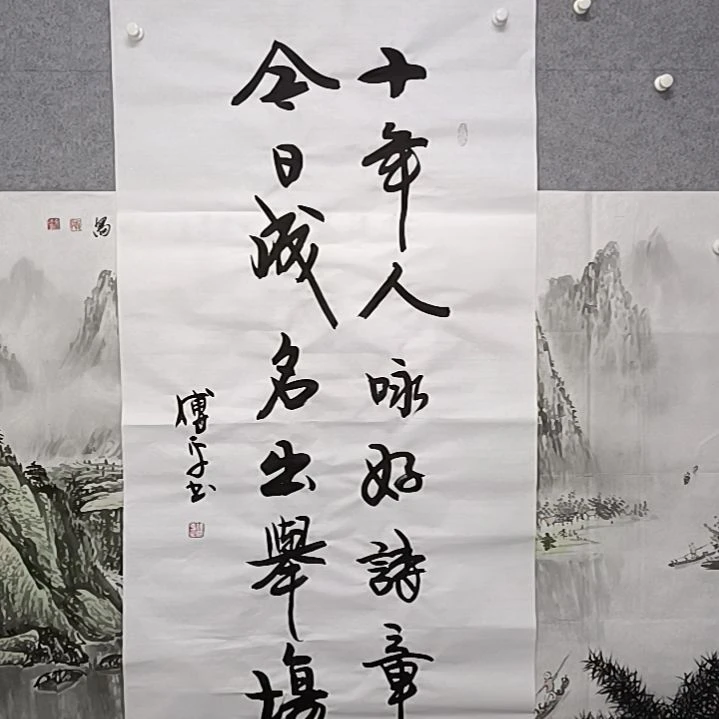 十年人咏好詩章
今日成名出舉場
傅平书